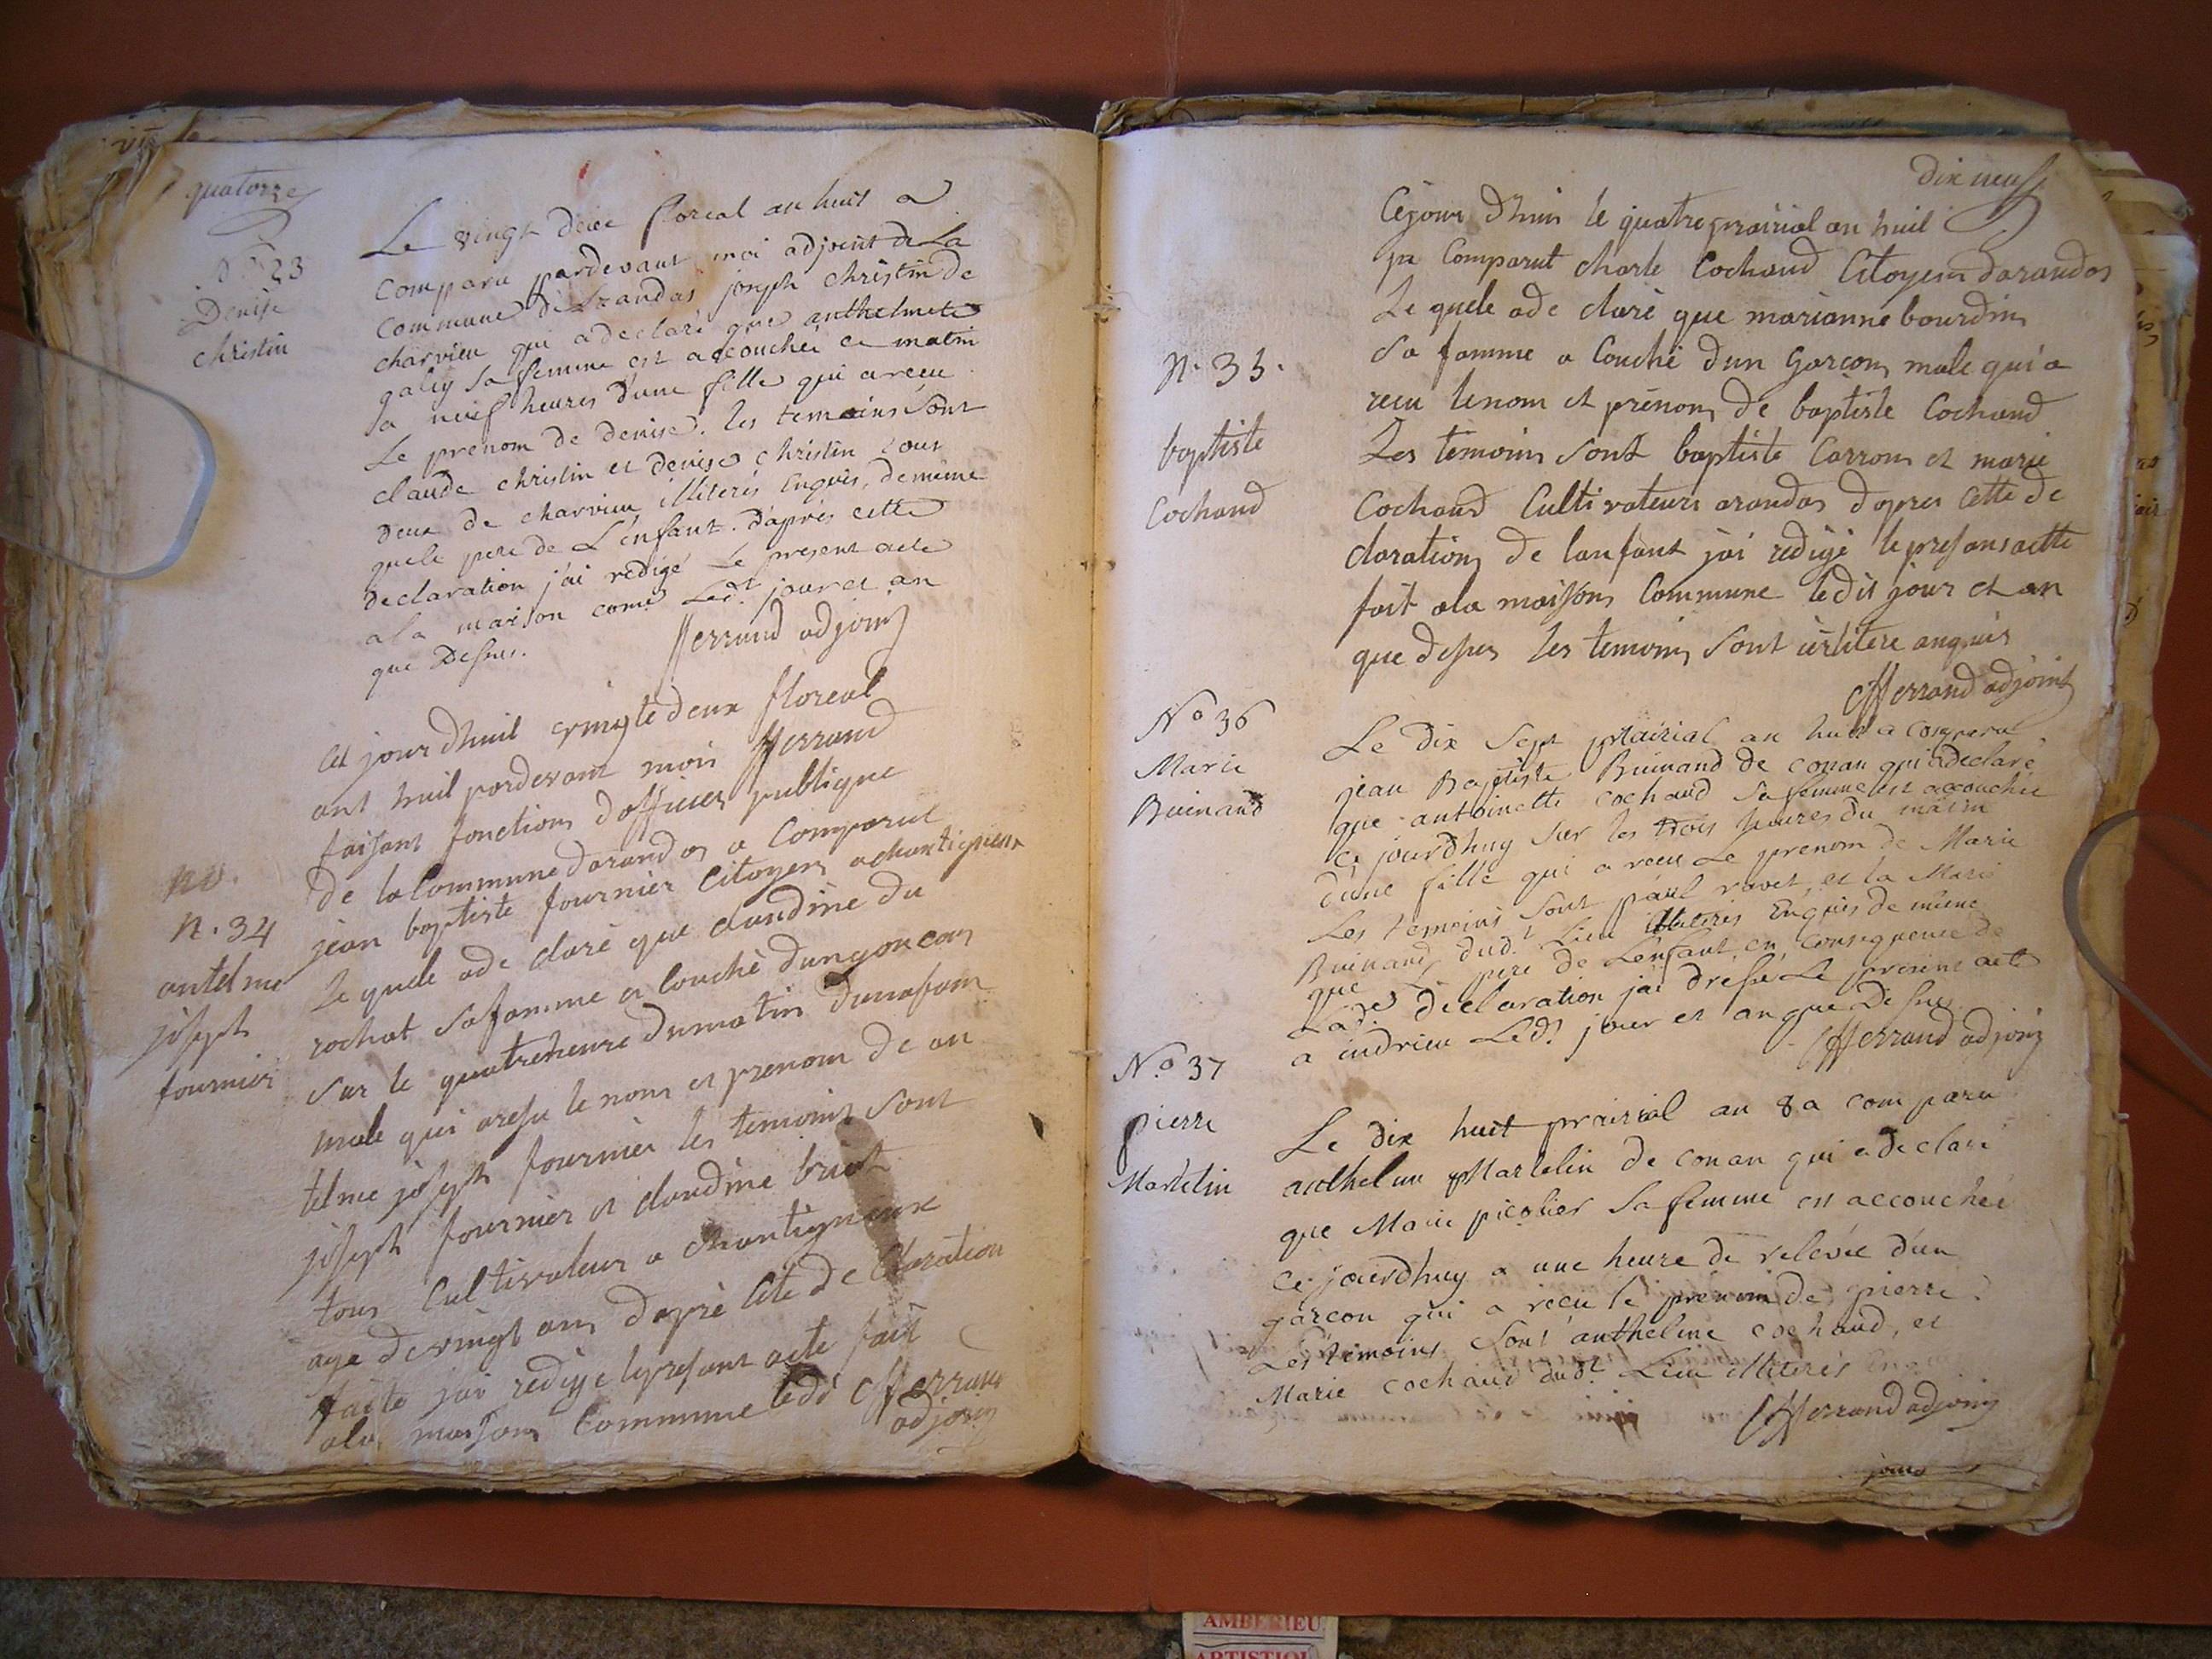 quatorze
N.° 23
Denise
christin
Le vingt deux floreal an huit a
comparu pardevant moi adjoint de La
commune d'Arandas joseph christin de
charvieu qui a declaré que anthelmete
galey sa femme est accouchée ce matin
sa neuf heures d'une fille qui a recu
Le prenom de denise. les temoins sont
claude christin et denise christin tous
deux de charvieu illiterés Enquis, de même
que le pere de L'enfant. d'après cette
declaration j'ai redigé Le present acte
a la maison come Led.t jour et an
que Dessus.
fferrand adjoint
cet jourdhuil vingte deux floreal
ant huil pardevant mois fferrand
faisant fonctions dofficier publique
de la Commune darandas a Comparut
jean baptiste fournier Citoyen a chantigneux
le quele a de claré que claudine du
rochat sa famme a Couché dun garcon
sur le quatre heure du matin dunafam
male qui a resu le nom et prenom de an
telme joseph fournier les temoins sont
joseph fournier et claudine briot
tous Cultivateur a Chantignieux
age de vingt ans daprè sete de Claration
faite jai redige le presant acte fait
a la maison Commune ledi fferrand
adjoint
N.
N. 34
antelme
joseph
fournier
dix neuf
Cejour dhui le quatre prairial an huil
Comparut charle Cochand Citoyen darandas
Le quele a de claré que marianne bourdin
sa famme a Couché dun Garcon male qui a
recu le nom et prénom de baptiste Cochand
Les temoins sont baptiste Carron et marie
Cochand Cultivateurs arandas dapres Cette de
claration de lanfant jai redigé le presans actte
fait a la maison Commune ledit jour et an
que desus les temoins sont islitere anquis
fferrand adjoint
N. 35.
baptiste
Cochand
N° 36
Marie
Buinand
Le dix sept prairial an huit a comparu
jean Baptiste Buinand de conan qui a declaré
que antoinette cochand sa femme est accouchée
ce jourdhuy sur les trois heures du matin
d'une fille qui a recu Le prenom de Marie
Les temoins sont paul ravet, et la Marie
Buinand dud.t Lieu illiterés Enquis de même
que pere de L'enfant, en Consequence de
Lad.e déclaration j'ai dressé Le présent acte
a indrieu Led.t jour et an que Dessus.
fferrand adjoint
N.° 37
pierre
Martelin
Le dix huit prairial an 8 a comparu
anthelme Martelin de conan qui a declaré
que Marie picolier Sa femme est accouchée
ce jourdhuy a une heure de relevée d'un
garcon qui a recu le prénom de pierre.
Les témoins sont anthelme cochand, et
Marie cochand dud.t Lieu illiterés
fferrand adjoint
AMBERIEU
ARTISTIQU